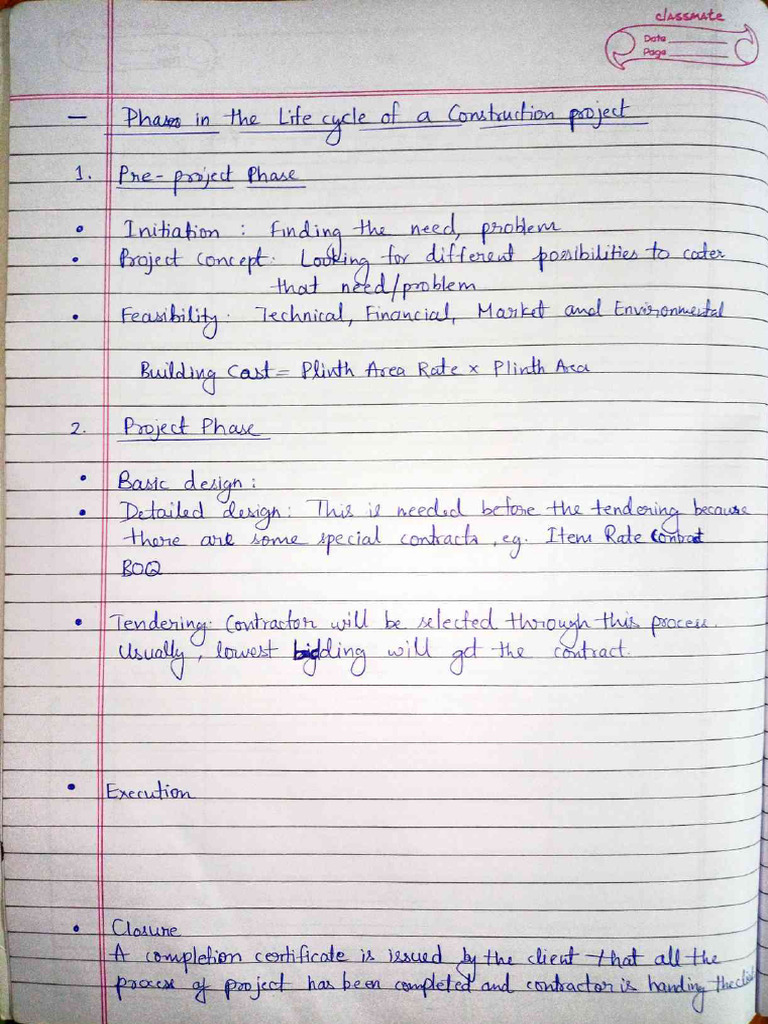 classmate
Date
Page
— Phases in the Life cycle of a Construction project
1. Pre-project Phase
• Initiation : Finding the need, problem
• Project concept: Looking for different possibilities to cater
that need/problem
• Feasibility: Technical, Financial, Market and Environmental
Building Cost = Plinth Area Rate × Plinth Area
2. Project Phase
• Basic design :
• Detailed design: This is needed before the tendering because
there are some special contracts, eg. Item Rate Contract
BOQ
• Tendering: Contractor will be selected through this process.
Usually, lowest bidding will get the contract.
• Execution
• Closure
A completion certificate is issued by the client that all the
process of project has been completed and contractor is handing the